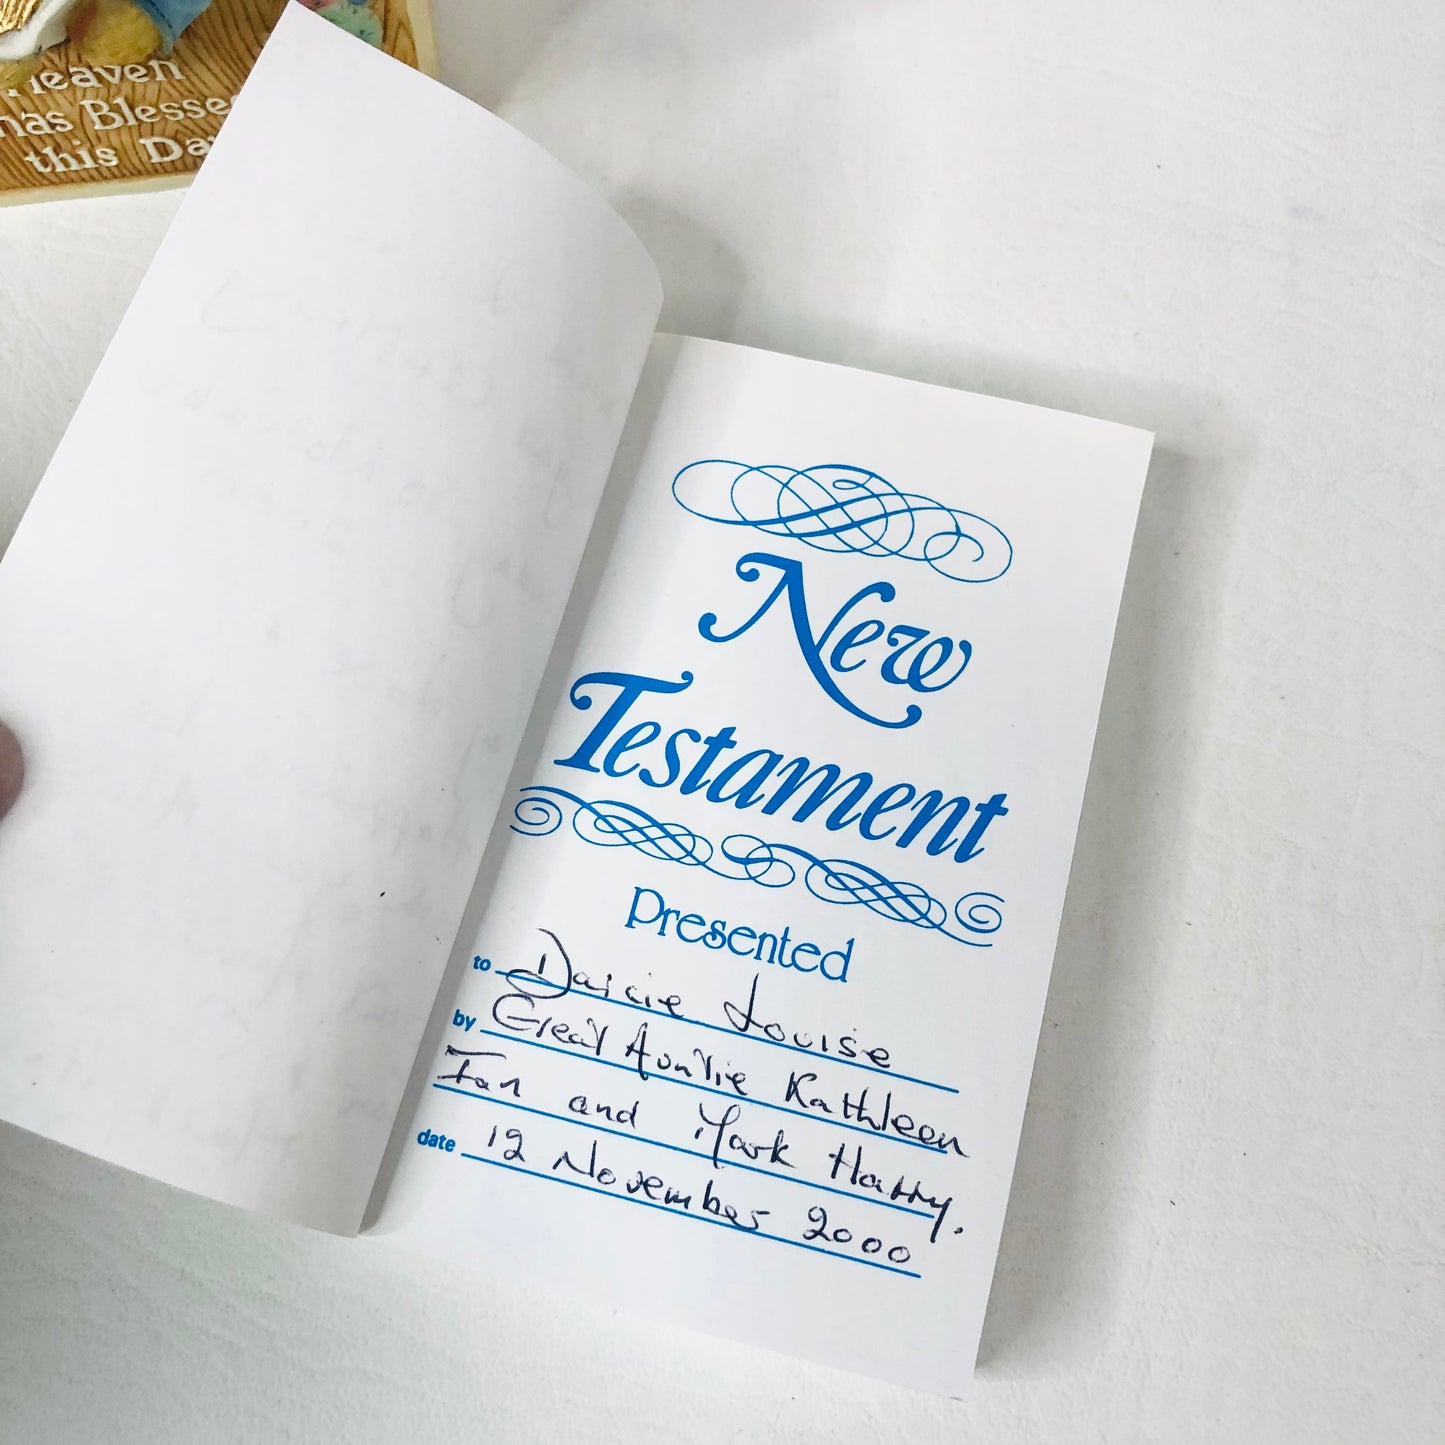 Heaven
has Blessed
this Da
New
Testament
Presented
to Daicie Louise
by Great Auntie Kathleen
Ian and Mark Hatty.
date 12 November 2000